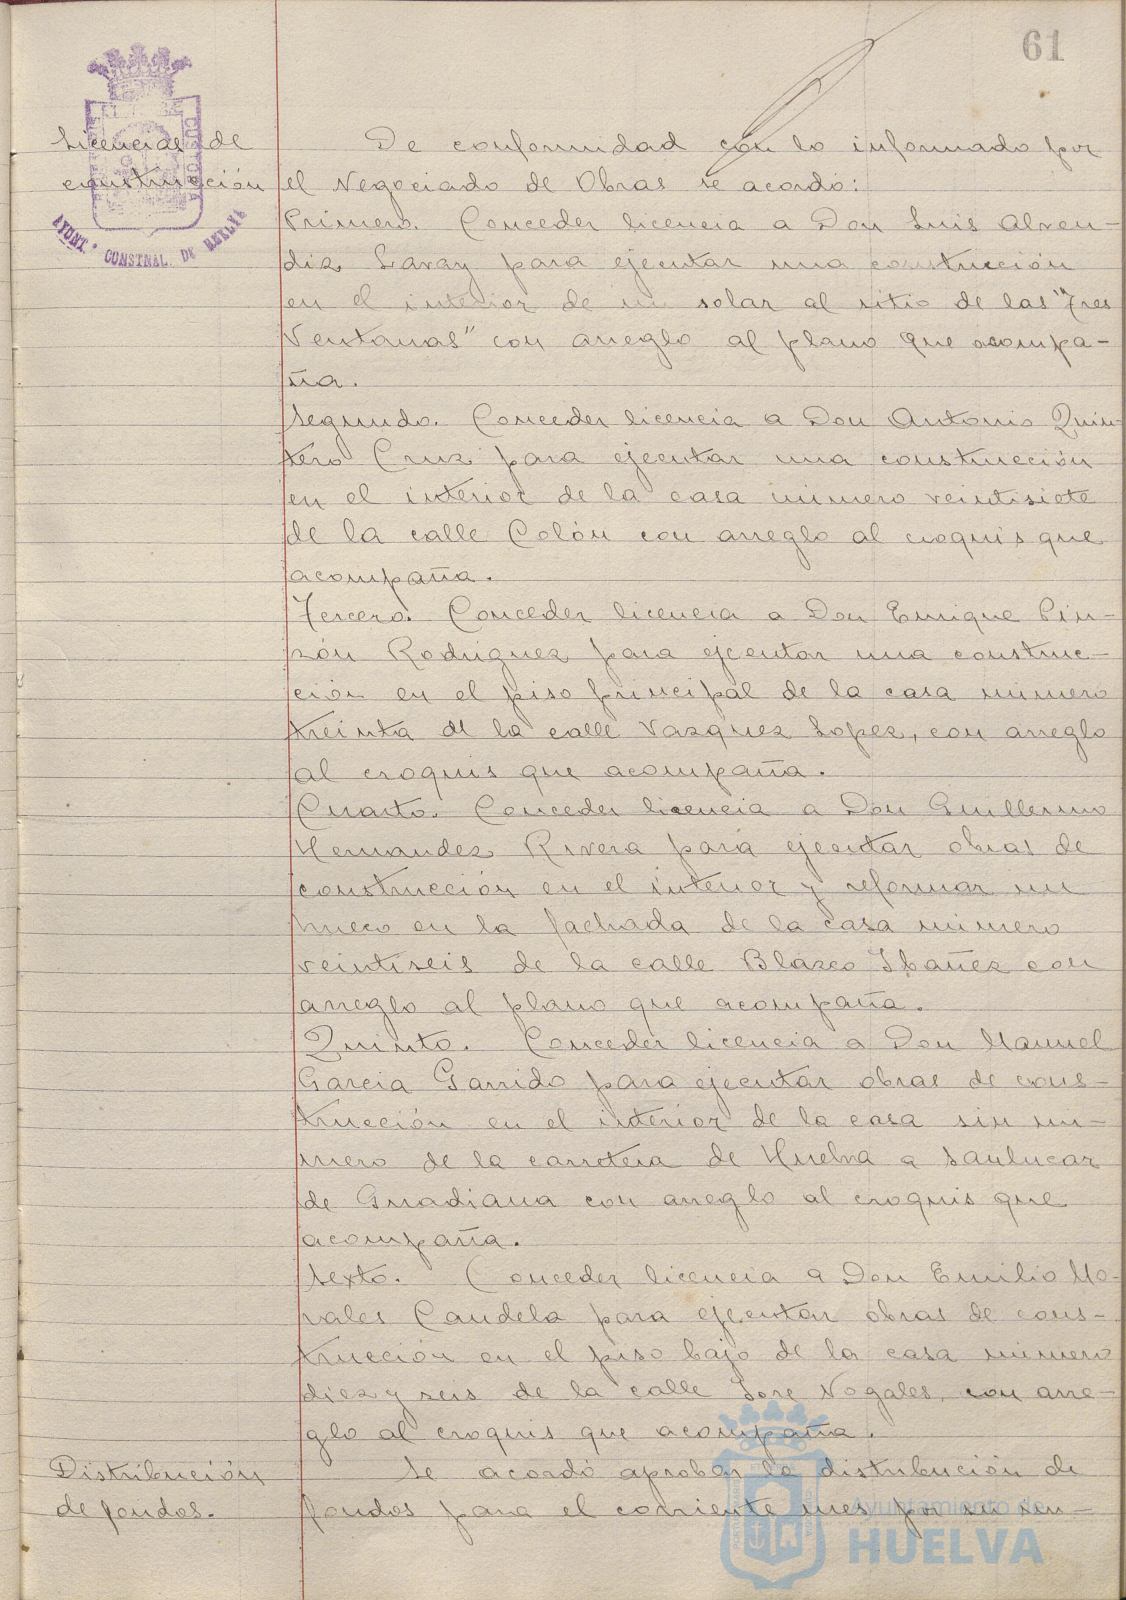 61
Licencias de
construcción
AYUNT. CONSTNAL. DE HUELVA
De conformidad con lo informado por
el Negociado de Obras se acordó:
Primero. Conceder licencia a Don Luis Alven-
diz Garay para ejecutar una construcción
en el interior de un solar al sitio de las "Tres
Ventanas" con arreglo al plano que acompa-
ña.
Segundo. Conceder licencia a Don Antonio Quin-
tero Cruz para ejecutar una construcción
en el interior de la casa número veintisiete
de la calle Colón con arreglo al croquis que
acompaña.
Tercero. Conceder licencia a Don Enrique Pin-
zón Rodriguez para ejecutar una construc-
ción en el piso principal de la casa número
treinta de la calle Vazquez Lopez, con arreglo
al croquis que acompaña.
Cuarto. Conceder licencia a Don Guillermo
Hernandez Rivera para ejecutar obras de
construcción en el interior y reformar un
hueco en la fachada de la casa número
veintiseis de la calle Blasco Ibañez con
arreglo al plano que acompaña.
Quinto. Conceder licencia a Don Manuel
Garcia Garrido para ejecutar obras de cons-
trucción en el interior de la casa sin nú-
mero de la carretera de Huelva a Sanlucar
de Guadiana con arreglo al croquis que
acompaña.
Sexto. Conceder licencia a Don Emilio Mo-
rales Candela para ejecutar obras de cons-
trucción en el piso bajo de la casa número
diez y seis de la calle Jose Nogales, con arre-
glo al croquis que acompaña.
Distribución
de fondos.
Se acordó aprobar la distribución de
fondos para el corriente mes por su im-
Ayuntamiento de
HUELVA